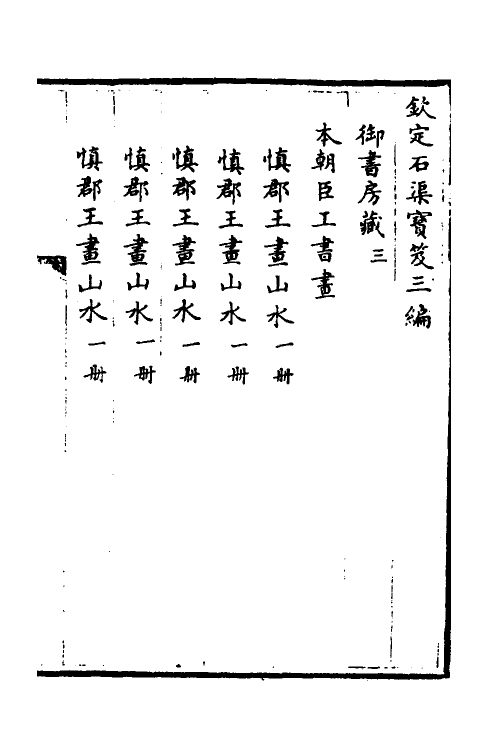 欽定石渠寶笈三編
御書房藏三
本朝臣工書畫
慎郡王畫山水一册
慎郡王畫山水一册
慎郡王畫山水一册
慎郡王畫山水一册
慎郡王畫山水一册